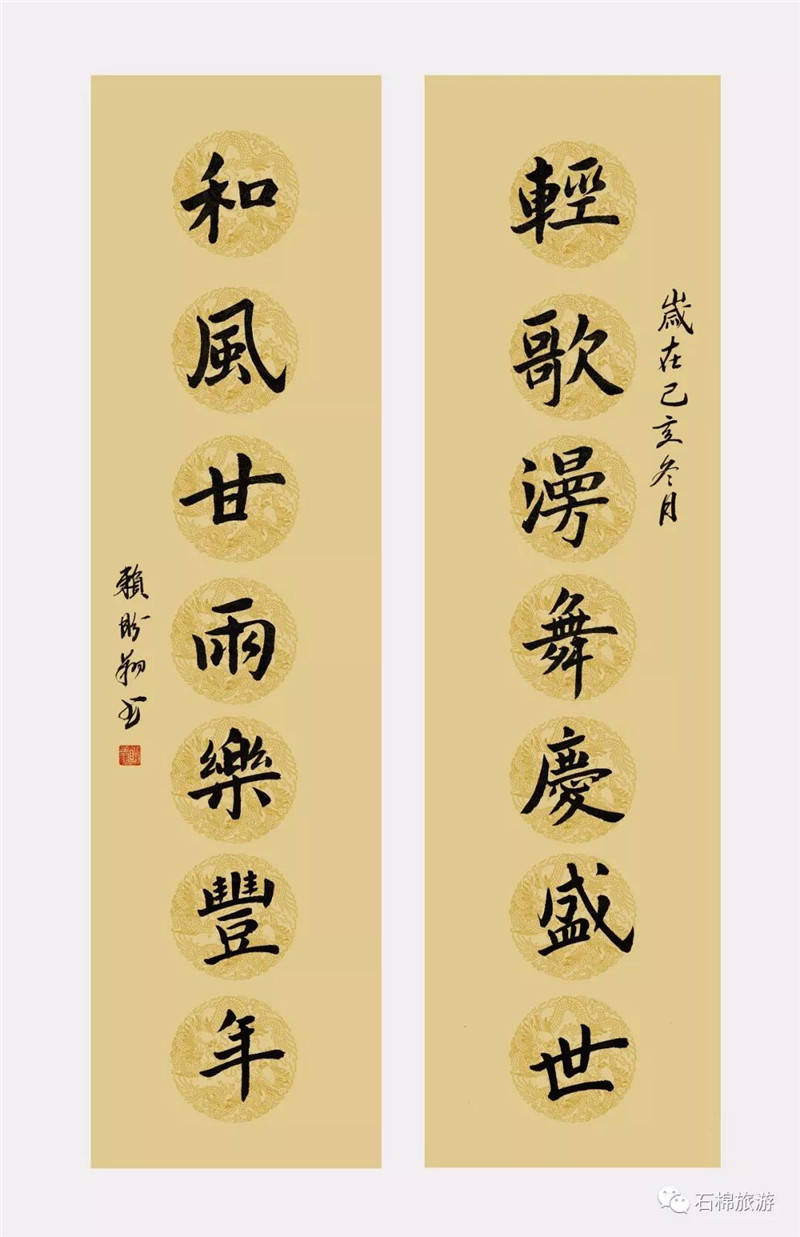 歲在己亥冬月
輕歌漫舞慶盛世
和風甘雨樂豐年
賴盼翔书
石棉旅游